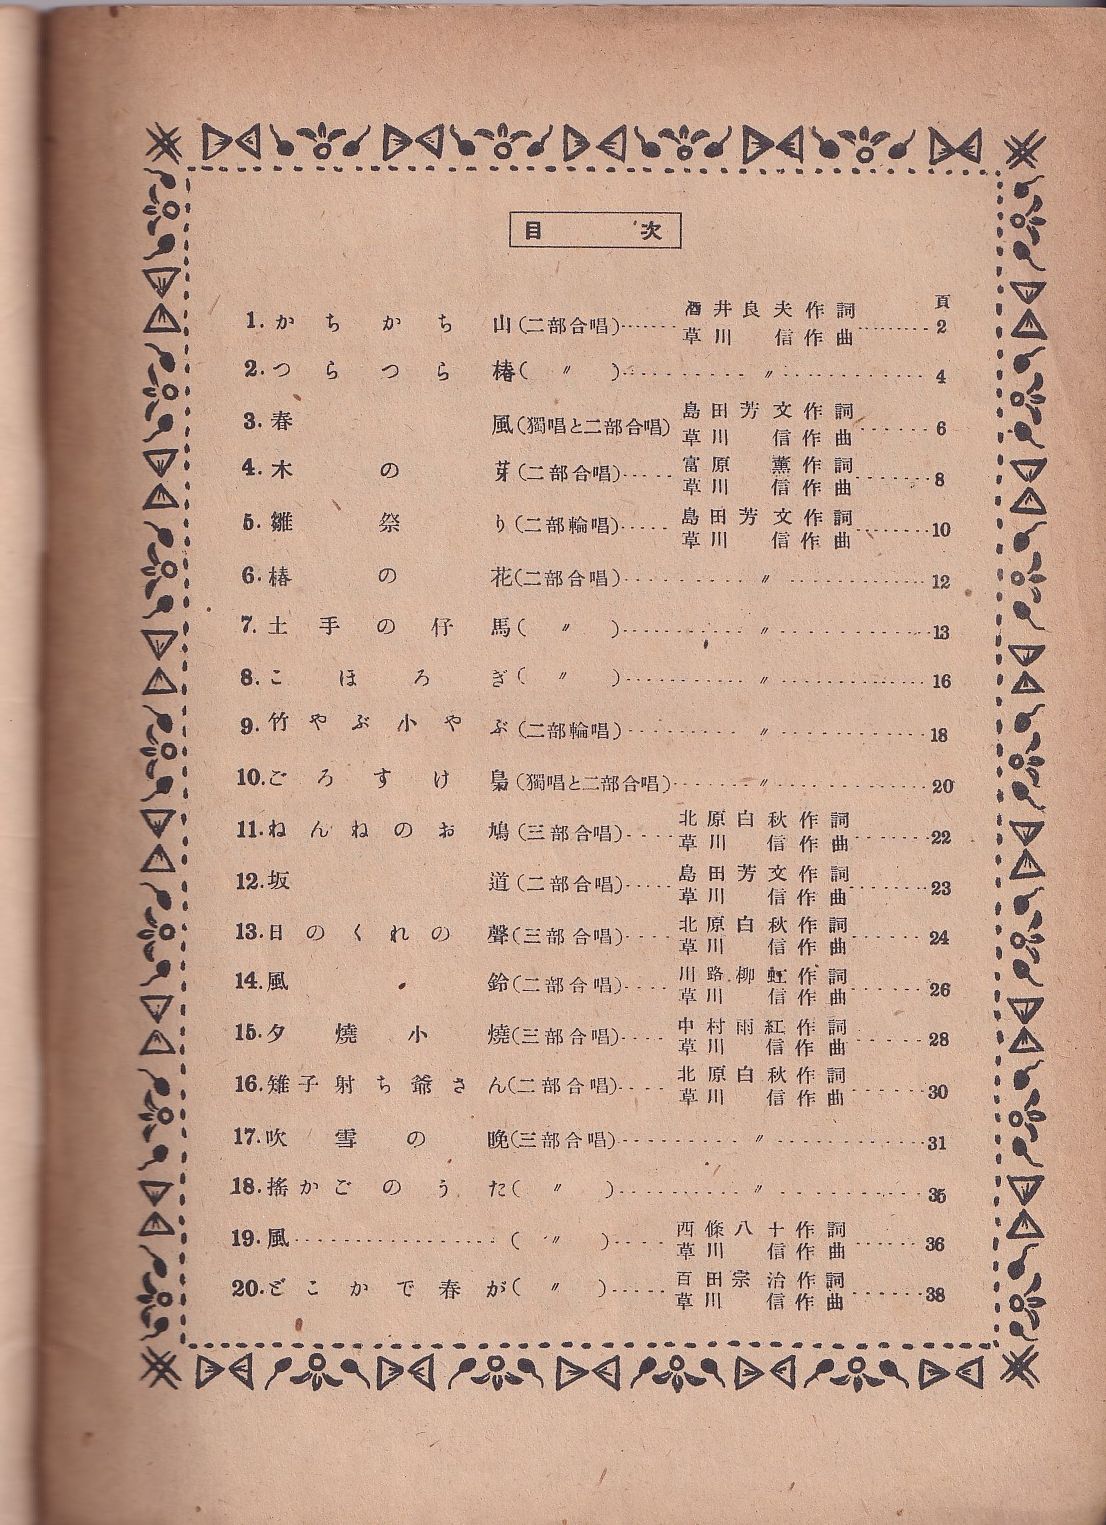 目次
頁
1. かちかち山(二部合唱)……酒井良夫作詞 草川信作曲……2
2. つらつら椿(〃)……〃……4
3. 春風(獨唱と二部合唱)島田芳文作詞 草川信作曲……6
4. 木の芽(二部合唱)……富原薫作詞 草川信作曲……8
5. 雛祭り(二部輪唱)……島田芳文作詞 草川信作曲……10
6. 椿の花(二部合唱)……〃……12
7. 土手の仔馬(〃)……〃……13
8. こほろぎ(〃)……〃……16
9. 竹やぶ小やぶ(二部輪唱)……〃……18
10. ごろすけ梟(獨唱と二部合唱)……〃……20
11. ねんねのお鳩(三部合唱)……北原白秋作詞 草川信作曲……22
12. 坂道(二部合唱)……島田芳文作詞 草川信作曲……23
13. 日のくれの聲(三部合唱)……北原白秋作詞 草川信作曲……24
14. 風鈴(二部合唱)……川路柳虹作詞 草川信作曲……26
15. 夕燒小燒(三部合唱)……中村雨紅作詞 草川信作曲……28
16. 雉子射ち爺さん(二部合唱)……北原白秋作詞 草川信作曲……30
17. 吹雪の晩(三部合唱)……〃……31
18. 搖かごのうた(〃)……〃……35
19. 風……(〃)……西條八十作詞 草川信作曲……36
20. どこかで春が(〃)……百田宗治作詞 草川信作曲……38